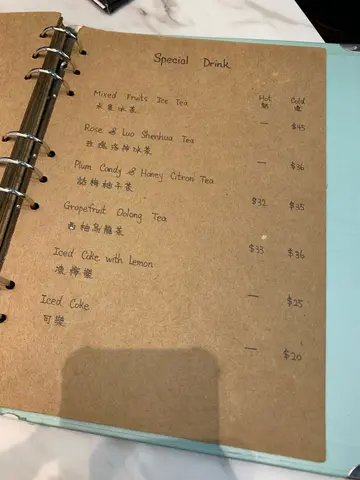 Special Drink
Hot Cold
熱 凍
Mixed Fruits Ice Tea — $45
水果冰茶
Rose & Luo Shenhua Tea — $36
玫瑰洛神冰茶
Plum Candy & Honny Citron Tea $32 $35
話梅柚子茶
Grapefruit Oolong Tea $33 $36
西柚烏龍茶
Iced Coke with Lemon — $25
凍檸樂
Iced Coke — $20
可樂